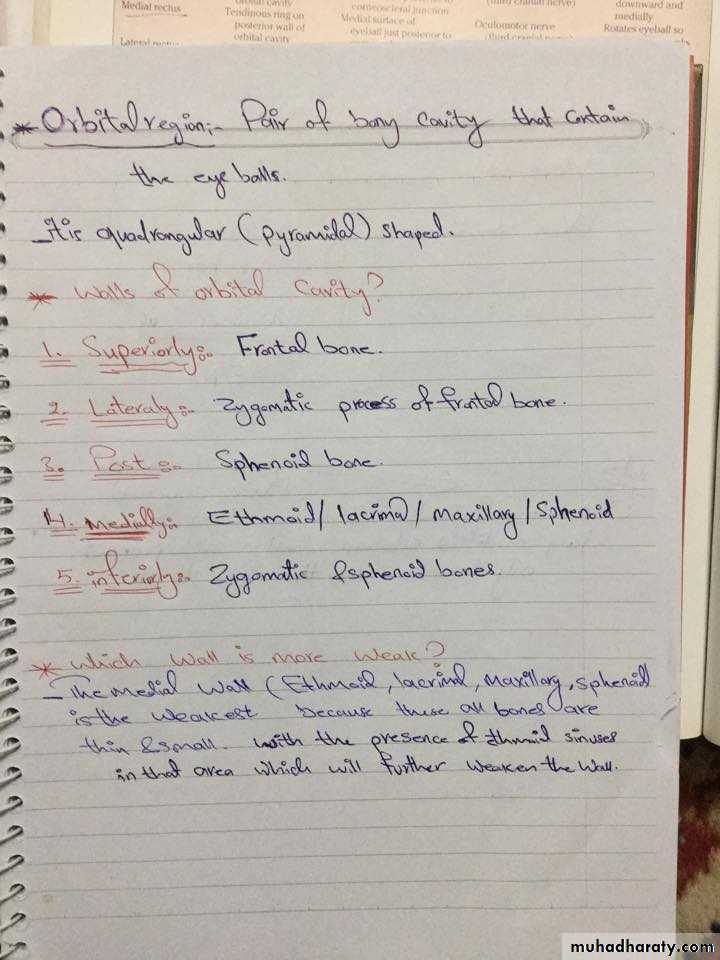 Medial rectus
orbital cavity
Tendinous ring on
posterior wall of
orbital cavity
corneoscleral junction
Medial surface of
eyeball just posterior to
Oculomotor nerve
(third cranial nerve)
downward and
medially
Rotates eyeball so
* Orbital region:- Pair of bony cavity that contain
the eye balls.
- it is quadrangular (pyramidal) shaped.
* Walls of orbital cavity?
1. Superiorly:- Frontal bone.
2. Lateraly:- Zygomatic process of frontal bone.
3. Post:- Sphenoid bone.
4. medially:- Ethmoid/ lacrimal / maxillary / Sphenoid
5. inferiorly:- Zygomatic & sphenoid bones.
* Which Wall is more weak?
- The medial Wall (Ethmoid, lacrimal, maxillary, sphenoid
is the weakest because these all bones are
thin & small. with the presence of ethmoid sinuses
in that area which will further weaken the Wall.
muhadharaty.com